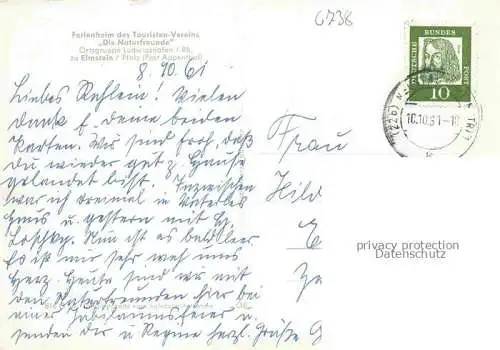 6738
Ferienheim des Touristen-Vereins
„Die Naturfreunde"
Ortsgruppe Ludwigshafen / Rh.
zu Elmstein / Pfalz (Post Appenthal)
8. 10. 61
Liebes Rehlein! Vielen
Dank f. Deine beiden
Karten. Wir sind froh, daß
Du wieder gut z. Hause
gelandet bist. Inzwischen
war ich dreimal in Vaterles
Haus u. gestern mit
Loschky. Nun ist es bald leer.
Es ist mir sehr weh ums
Herz. Heute sind wir mit
den Naturfreunden hier bei
einer Jubiläumsfeier u.
senden Dir u. Regine herzl. Grüße
Frau
Hild
DEUTSCHE
BUNDES
POST
10
(22b)
10.10.61-18
privacy protection
Datenschutz